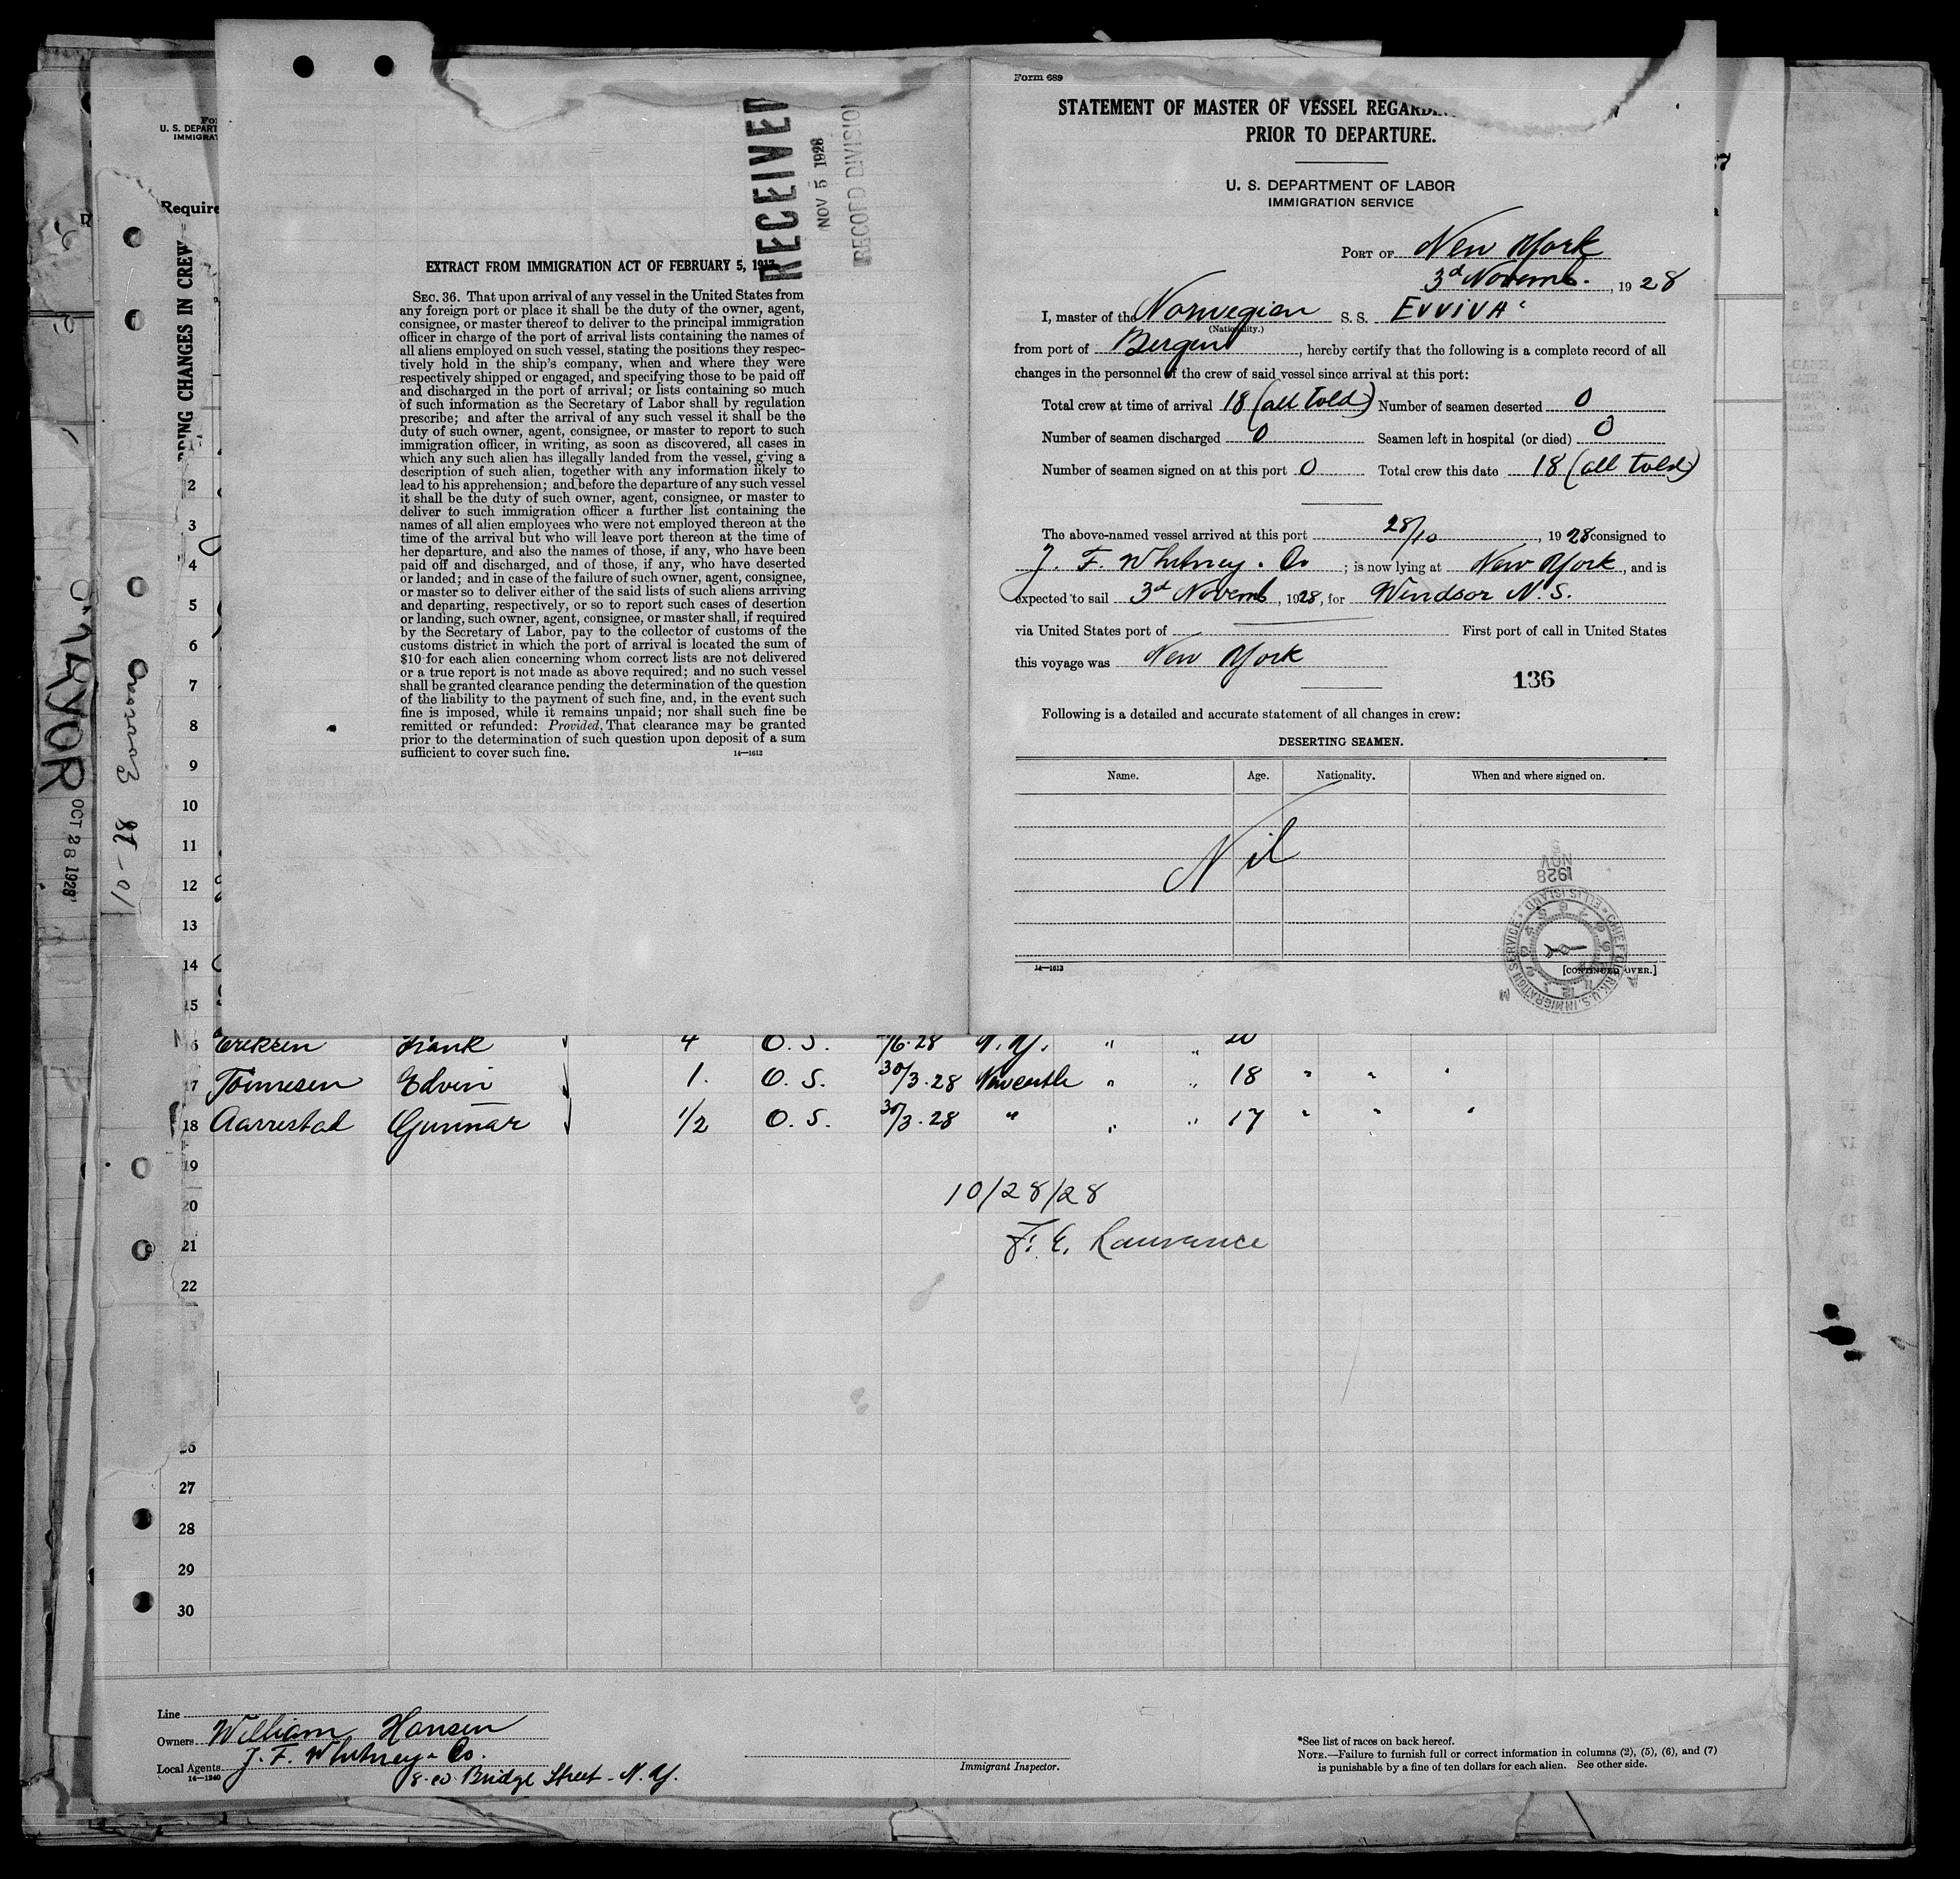 Form 689
STATEMENT OF MASTER OF VESSEL
PRIOR TO DEPARTURE.
U. S. DEPARTMENT OF LABOR
IMMIGRATION SERVICE
PORT OF New York
3d Novemb. , 1928
I, master of the Norwegian S. S. EVVIVA
(Nationality.)
from port of Bergen, hereby certify that the following is a complete record of all
changes in the personnel of the crew of said vessel since arrival at this port:
Total crew at time of arrival 18 (all told) Number of seamen deserted 0
Number of seamen discharged 0 Seamen left in hospital (or died) 0
Number of seamen signed on at this port 0 Total crew this date 18 (all told)
The above-named vessel arrived at this port 28/10, 1928 consigned to
J. F. Whitney & Co ; is now lying at New York, and is
expected to sail 3d Novemb, 1928, for Windsor N.S.
via United States port of First port of call in United States
this voyage was New York
136
Following is a detailed and accurate statement of all changes in crew:
DESERTING SEAMEN.
Name. Age. Nationality. When and where signed on.
Nil
1928
NOV
CHIEF CLERK, U.S. IMMIGRATION SERVICE ELLIS ISLAND
A M
14—1613 [CONTINUED OVER.]
RECEIVED
NOV 5 1928
RECORD DIVISION
EXTRACT FROM IMMIGRATION ACT OF FEBRUARY 5, 1917
SEC. 36. That upon arrival of any vessel in the United States from
any foreign port or place it shall be the duty of the owner, agent,
consignee, or master thereof to deliver to the principal immigration
officer in charge of the port of arrival lists containing the names of
all aliens employed on such vessel, stating the positions they respec-
tively hold in the ship's company, when and where they were
respectively shipped or engaged, and specifying those to be paid off
and discharged in the port of arrival; or lists containing so much
of such information as the Secretary of Labor shall by regulation
prescribe; and after the arrival of any such vessel it shall be the
duty of such owner, agent, consignee, or master to report to such
immigration officer, in writing, as soon as discovered, all cases in
which any such alien has illegally landed from the vessel, giving a
description of such alien, together with any information likely to
lead to his apprehension; and before the departure of any such vessel
it shall be the duty of such owner, agent, consignee, or master to
deliver to such immigration officer a further list containing the
names of all alien employees who were not employed thereon at the
time of the arrival but who will leave port thereon at the time of
her departure, and also the names of those, if any, who have been
paid off and discharged, and of those, if any, who have deserted
or landed; and in case of the failure of such owner, agent, consignee,
or master so to deliver either of the said lists of such aliens arriving
and departing, respectively, or so to report such cases of desertion
or landing, such owner, agent, consignee, or master shall, if required
by the Secretary of Labor, pay to the collector of customs of the
customs district in which the port of arrival is located the sum of
$10 for each alien concerning whom correct lists are not delivered
or a true report is not made as above required; and no such vessel
shall be granted clearance pending the determination of the question
of the liability to the payment of such fine, and, in the event such
fine is imposed, while it remains unpaid; nor shall such fine be
remitted or refunded: Provided, That clearance may be granted
prior to the determination of such question upon deposit of a sum
sufficient to cover such fine. 14—1613
U. S. DEPART
IMMIGRAT
Require
CHANGES IN CREW
OCT 28 1928
2
3
4
5
6
7
8
9
10
11
12
13
14
15
Eriksen Frank 4 O. S. 28 N. Y. " " 20
17 Tonnesen Edvin 1. O. S. 30/3.28 Newcastle " " 18 " " "
18 Aarrestad Gunnar 1/2 O. S. 30/3.28 " " " 17 " " "
19
20 10/28/28
21 F. E. Lawrance
22
26
27
28
29
30
Line
Owners William Hansen
Local Agents J. F. Whitney & Co.
14—1240 8-10 Bridge Street - N. Y.
Immigrant Inspector.
*See list of races on back hereof.
NOTE.—Failure to furnish full or correct information in columns (2), (5), (6), and (7)
is punishable by a fine of ten dollars for each alien. See other side.